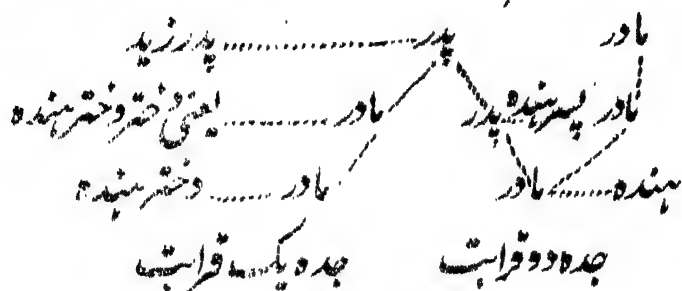 مادر پدر پدر زید
مادر پسر ہندہ پدر مادر یعنی دختر دختر ہندہ
ہندہ مادر مادر دختر ہندہ
جدہ دو قرابت جدہ یک قرابت